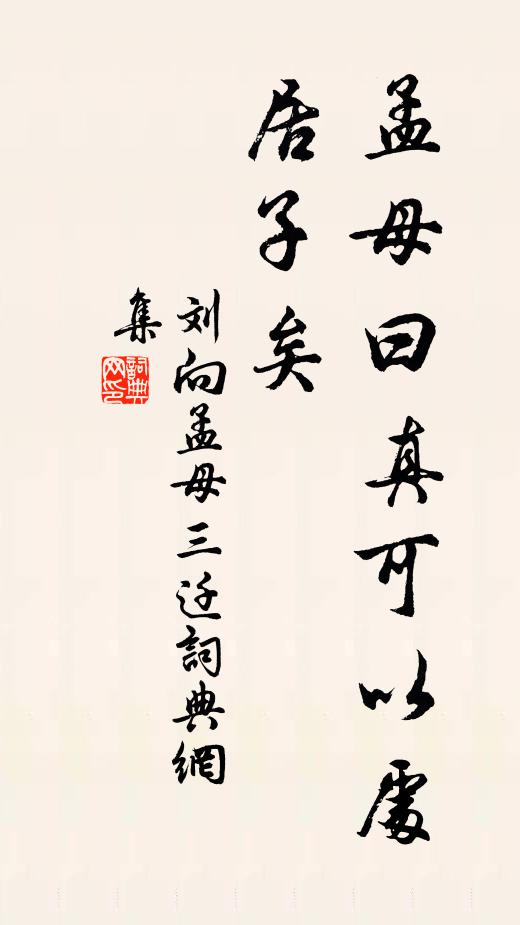 孟母曰真可以處
居子矣
刘向孟母三迁詞典網
集
詞典
网印